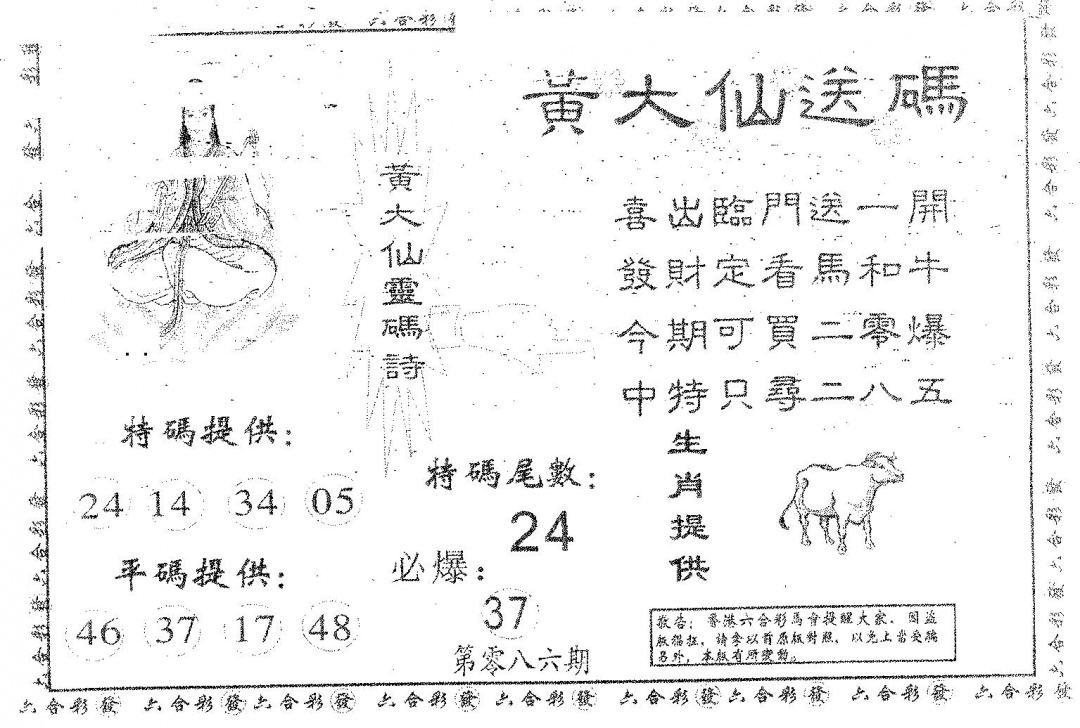 黃大仙送碼
黃大仙靈碼詩
喜出臨門送一開
發財定看馬和牛
今期可買二零爆
中特只尋二八五
特碼提供：
24 14 34 05
平碼提供：
46 37 17 48
特碼尾數：
24
必爆：
37
第零八六期
生肖提供
敬告：香港六合彩馬會提醒大家，因盜
版猖狂，請參以首原版對照，以免上當受騙
另外，本版有所變動。
六合彩發 六合彩發 六合彩發 六合彩發 六合彩發 六合彩發 六合彩發 六合彩發 六合彩發